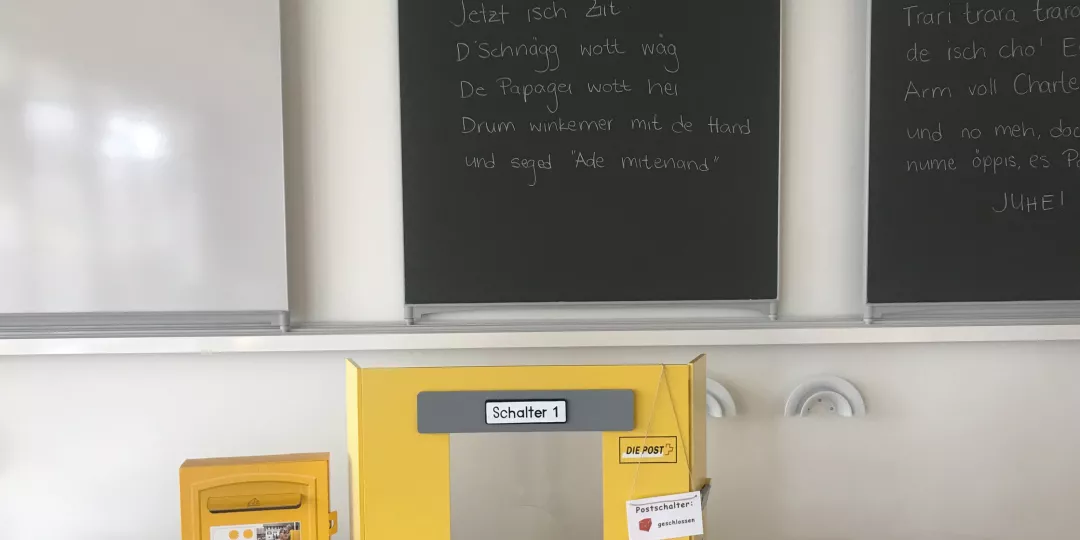 Jetzt isch Zit
D'Schnägg wott wäg
De Papagei wott hei
Drum winkemer mit de Hand
und seged "Ade mitenand"
Trari trara
de isch cho'
Arm voll
und no meh,
nume öppis, es
JUHE!
Schalter 1
DIE POST
Postschalter:
geschlossen